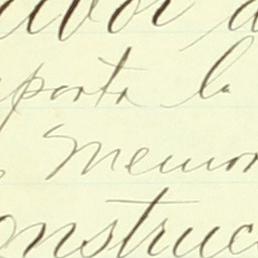 avor d
porta la
Memor
onstruc